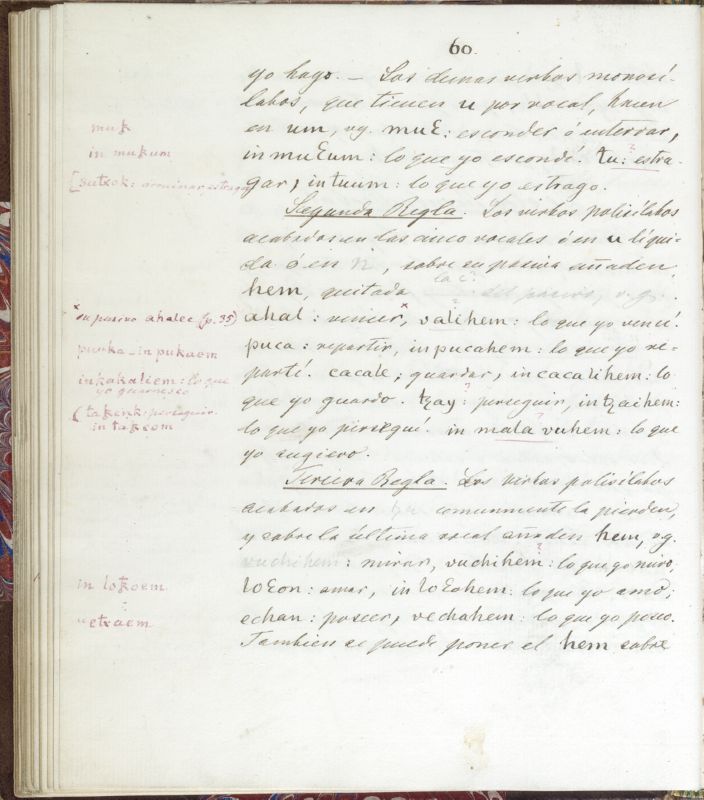 60.
yo hago. — Los demas verbos monosí-
labos, que tienen u por vocal, hacen
en um, vg. muꜪ: esconder ó enterrar,
muk
in muꜪum: lo que yo escondí. tu: estra-
in mukum
gar, in tuum: lo que yo estrago.
[sutxok: arruinar, estragar
Segunda Regla. Los verbos polisílabos
acabados en las cinco vocales ó en u líqui-
da ó en n, sobre su pasiva añaden
hem, quitada la c? del pasivo, v.g.
ahal: vencer, valihem: lo que yo vencí.
x su pasivo ahalec (p. 35)
puca: repartir, in pucahem: lo que yo re-
puvka - in pukaem
partí. cacale; guardar, in cacalihem: lo
in kakaliem: lo que
yo guarnesco
que yo guardo. tzay? perseguir, in tzaihem:
(takenk: perseguir.
in takeom
lo que yo perseguí. in mala vuhem: lo que
yo sugiero.
Tercera Regla. Los verbos polisílabos
acabados en comunmente la pierden,
y sobre la última vocal añaden hem, v.g.
vuchihem: mirar, vuchihem: lo que yo miro,
loꜪon: amar, in loꜪohem: lo que yo amo;
in lokoem
echan: poseer, vechahem: lo que yo poseo.
"etxaem
Tambien se puede poner el hem sobre